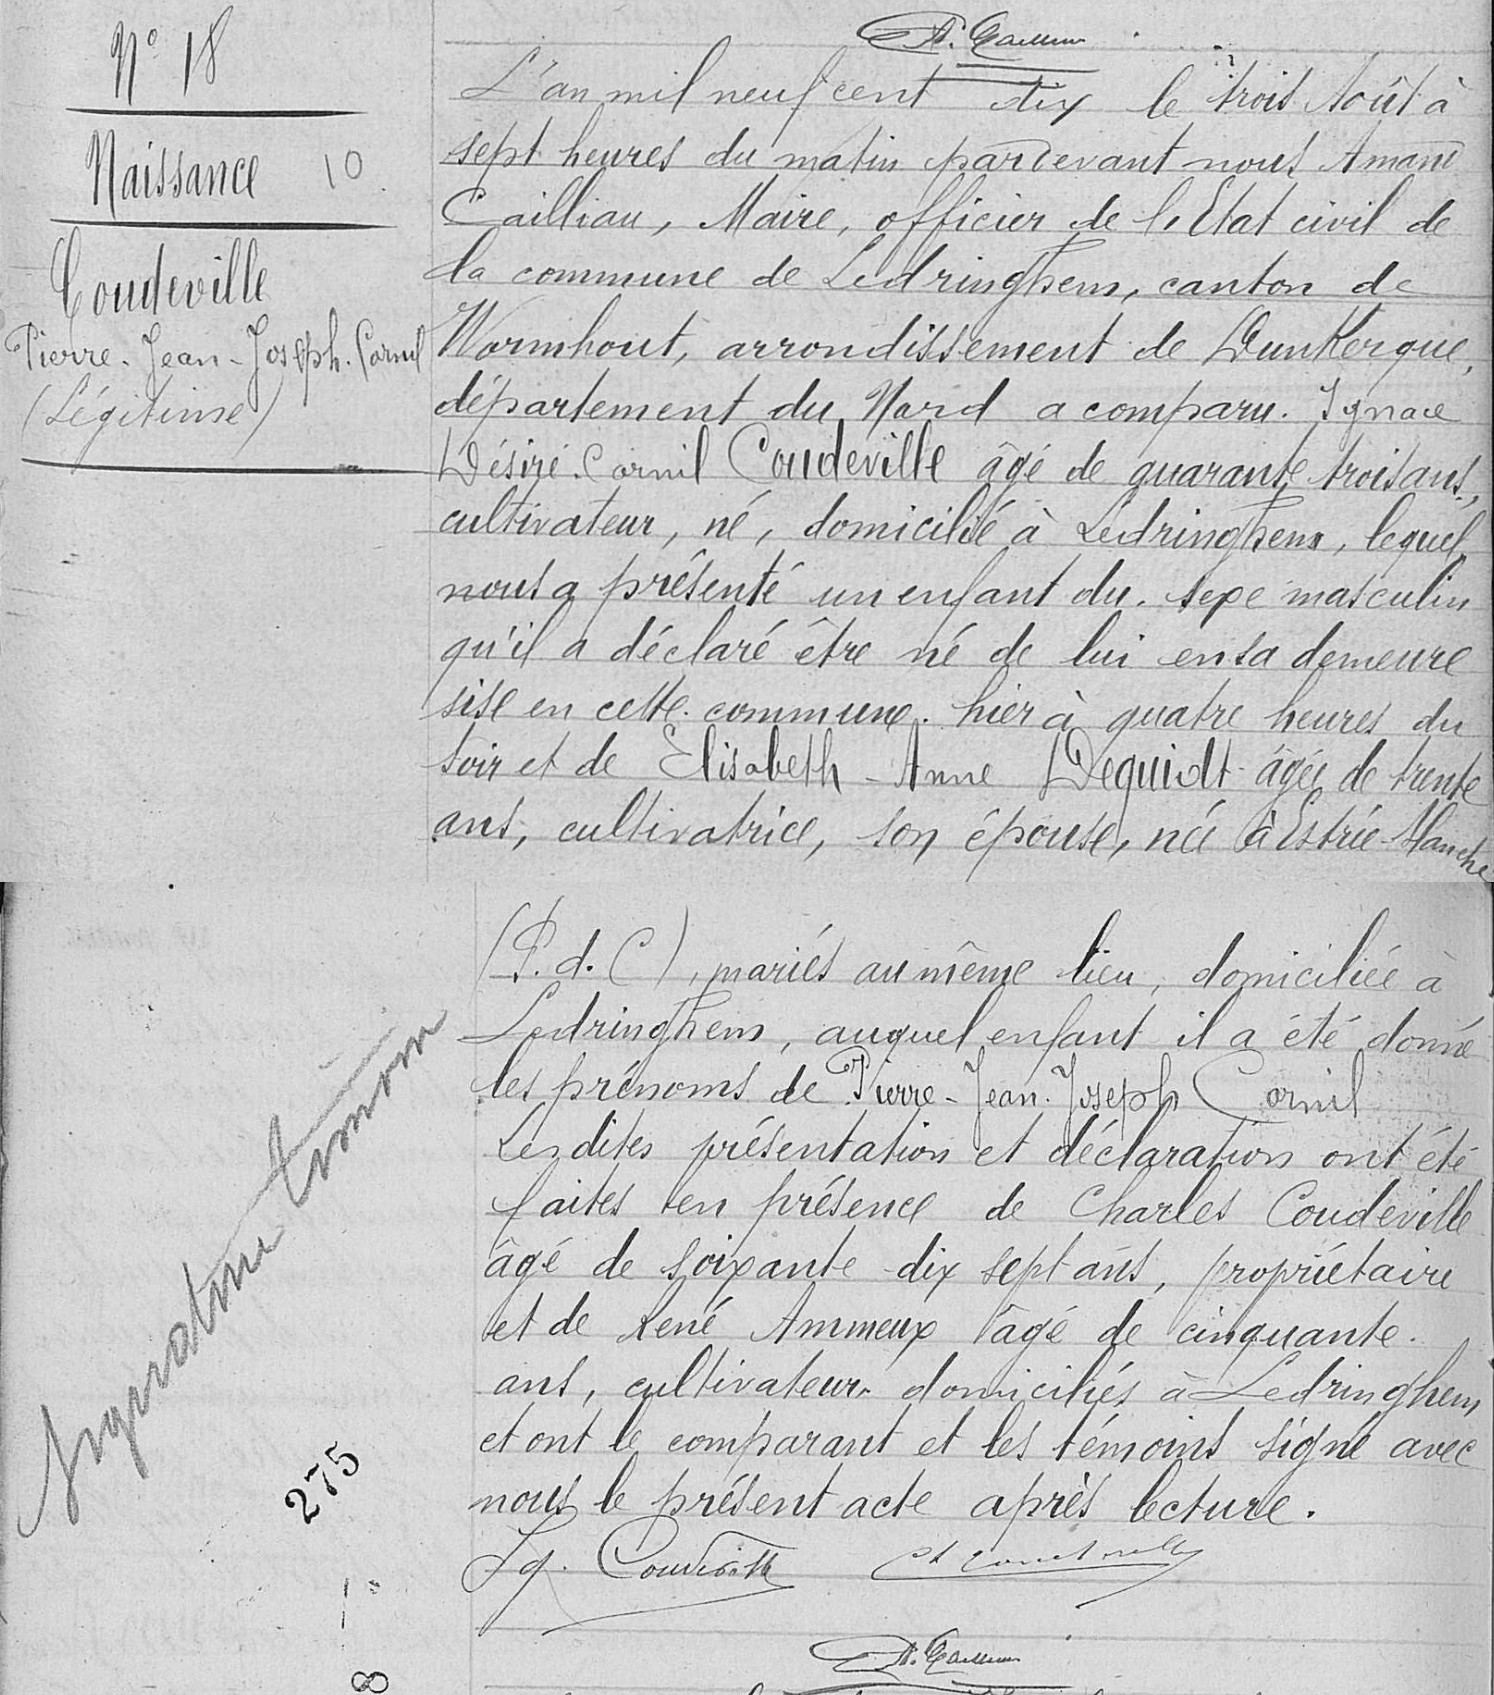 N° 18
Naissance 10
Coudeville
Pierre-Jean-Joseph. Cornil
(Légitime)
L'an mil neuf cent dix le trois Août à
sept heures du matin pardevant nous Amand
Cailliau, Maire, officier de l'Etat civil de
la commune de Ledringhem, canton de
Wormhout, arrondissement de Dunkerque,
département du Nord a comparu. Ignace
Désiré. Cornil Coudeville âgé de quarante trois ans,
cultivateur, né, domicilié à Ledringhem, lequel
nous a présenté un enfant du. sexe masculin
qu'il a déclaré être né de lui en sa demeure
sise en cette. commune. hier à quatre heures du
soir et de Elisabeth-Anne Dequidt âgée de trente
ans, cultivatrice, son épouse, née à Estrée-Blanche
(P. d. C), mariés au même lieu, domiciliée à
Ledringhem, auquel enfant il a été donné
les prénoms de Pierre-Jean. Joseph Cornil
Lesdites présentation et déclaration ont été
faites en présence de Charles Coudeville
âgé de soixante-dix sept ans, propriétaire
et de René Ammeux âgé de cinquante.
ans, cultivateur domiciliés à Ledringhem
et ont le comparant et les témoins signé avec
nous le présent acte après lecture.
Ig. Coudeville
275
8